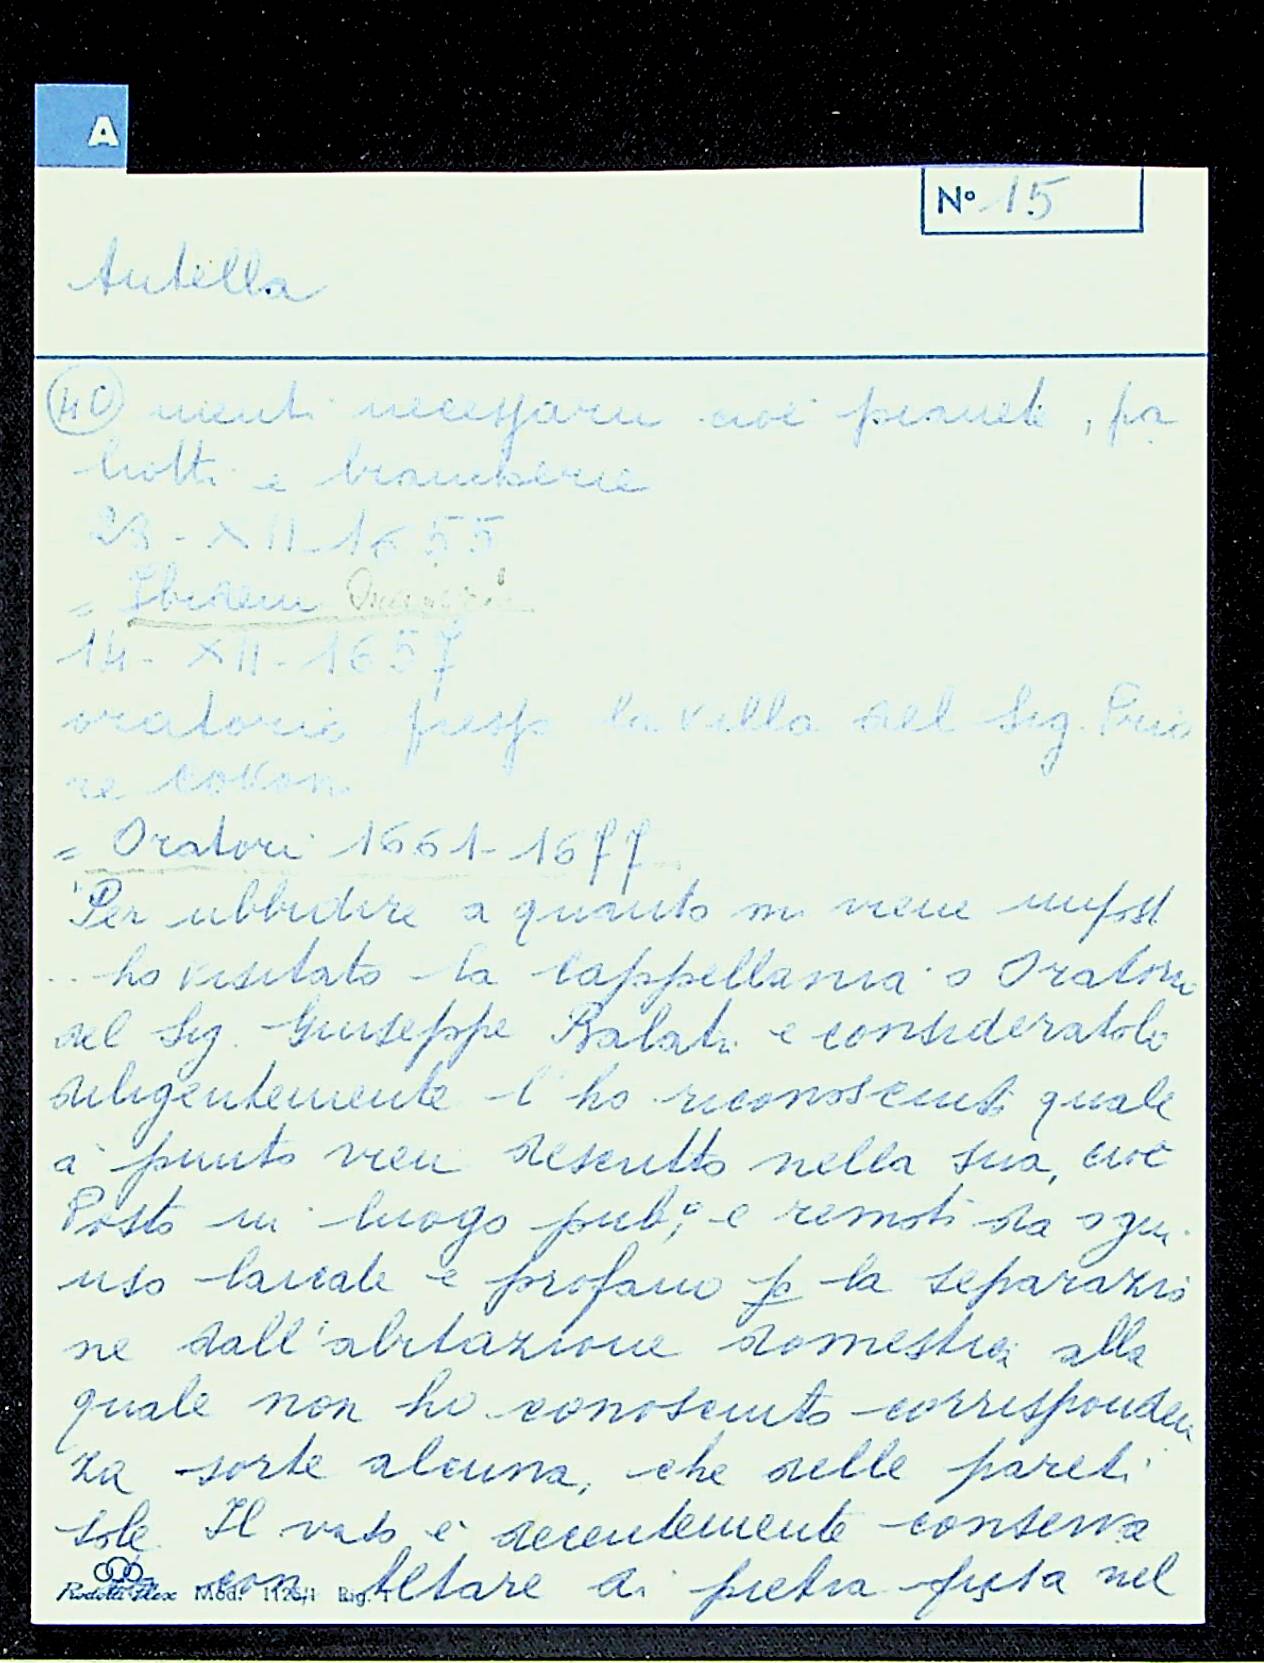 A
N° 15
Antella
40 menti necessarii cioè pianete, pa
liotti e biancherie
28 - XII - 1655
= Ibidem
14 - XII - 1657
oratorio presso la villa del Sig. Prio
re Covoni
= Oratori 1661 - 1677
"Per ubbidire a quanto mi viene impost
... ho visitato la cappellania o Oratorio
del Sig. Giuseppe Balati e consideratolo
diligentemente l'ho riconosciuto quale
a punto vien descritto nella sua, cioè
Posto in luogo pub.° e remoto da ogni
uso laicale e profano p la separazio
ne dall'abitazione domestica alla
quale non ho conosciuto corrisponden
za sorte alcuna, che delle pareti
sole. Il vaso è decentemente conserva
con Altare di pietra fissa nel
Rodolfo Flex Mod. 1126/1 Rig. 1